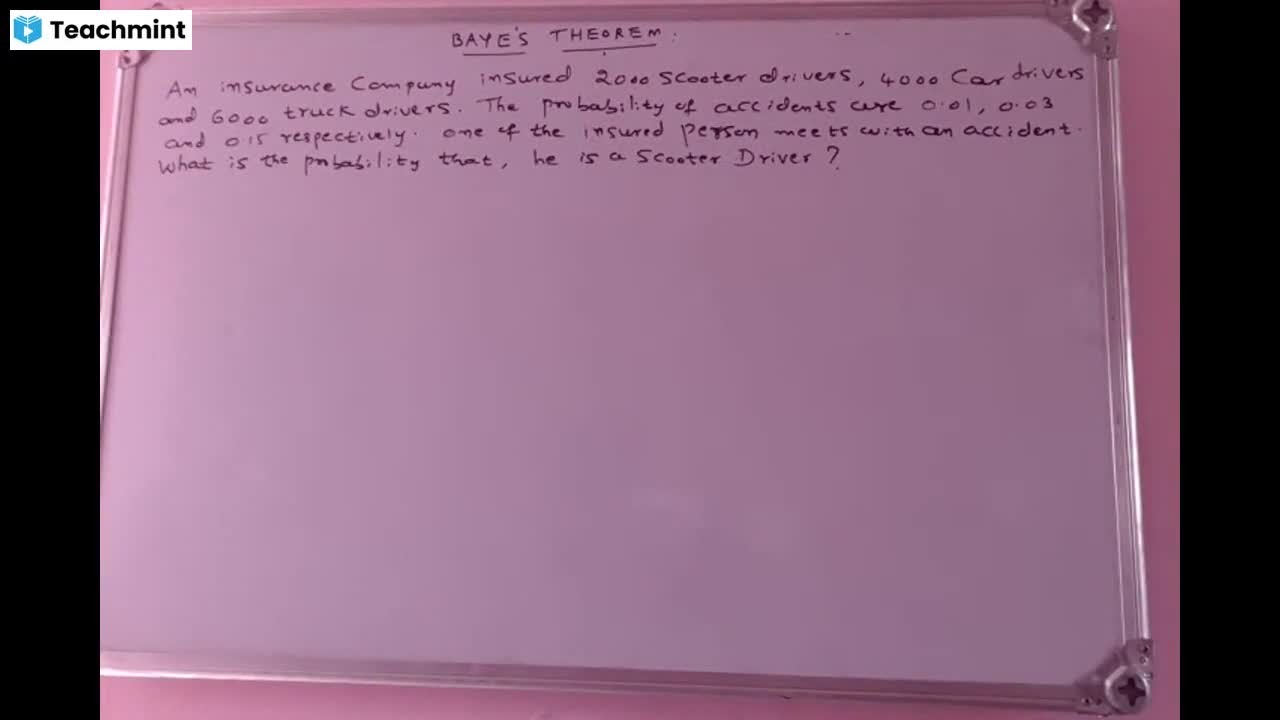 Teachmint
BAYE'S THEOREM.
An insurance Company insured 2000 Scooter drivers, 4000 Car drivers
and 6000 truck drivers. The probability of accidents are 0.01, 0.03
and 0.15 respectively. one of the insured person meets with an accident.
What is the probability that, he is a Scooter Driver ?